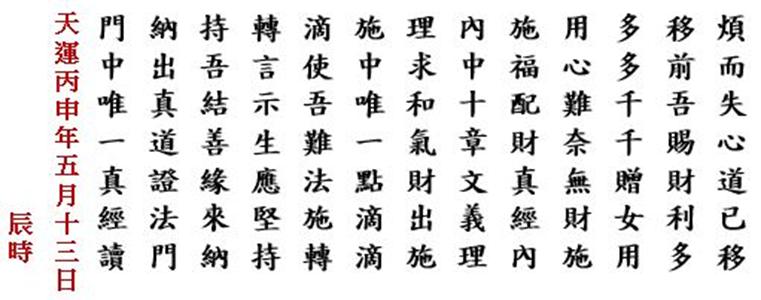 煩而失心道已移
移前吾賜財利多
多多千千贈女用
用心難奈無財施
施福配財真經內
內中十章文義理
理求和氣財出施
施中唯一點滴滴
滴使吾難法施轉
轉言示生應堅持
持吾結善緣來納
納出真道證法門
門中唯一真經讀
天運丙申年五月十三日
辰時